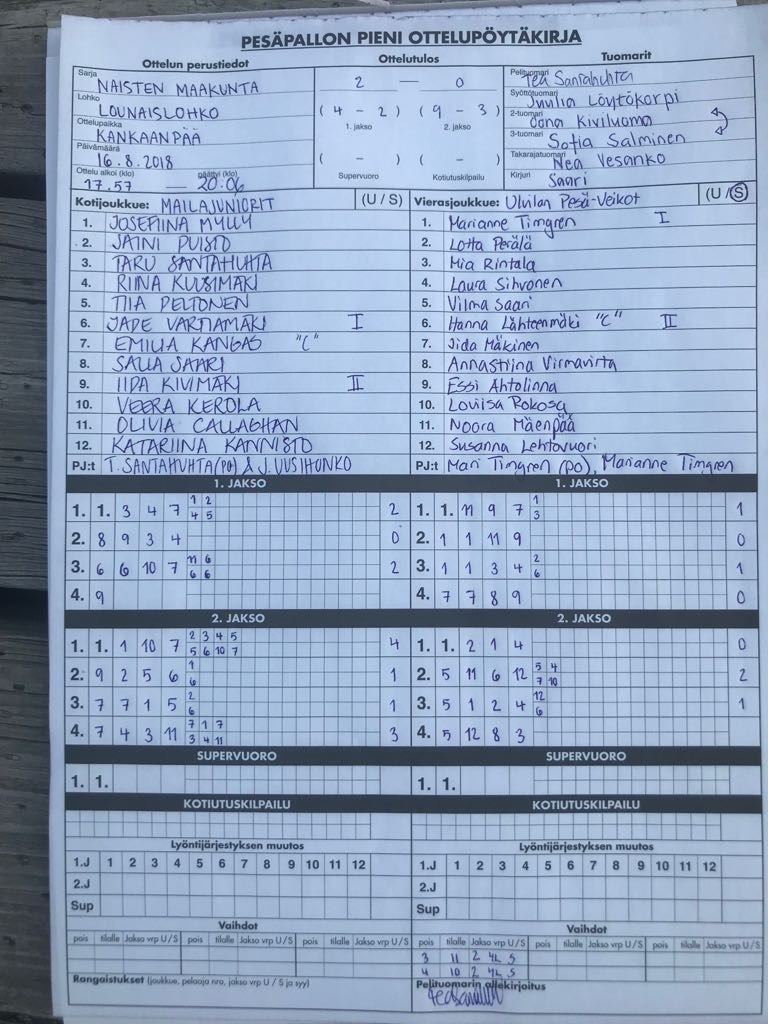 PESÄPALLON PIENI OTTELUPÖYTÄKIRJA
Ottelun perustiedot Ottelutulos Tuomarit
Sarja NAISTEN MAAKUNTA
Lohko LOUNAISLOHKO
Ottelupaikka KANKAANPÄÄ
Päivämäärä 16.8.2018
Ottelu alkoi (klo) 17.57 päättyi (klo) 20.06
2 — 0
( 4 - 2 ) ( 9 - 3 )
1. jakso 2. jakso
( - ) ( - )
Supervuoro Kotiutuskilpailu
Pelituomari Tea Santahuhta
Syöttötuomari Juulia Löytökorpi
2-tuomari Oona Kiviluoma
3-tuomari Sofia Salminen
Takarajatuomari Nea Vesanko
Kirjuri Saari
Kotijoukkue: MAILAJUNIORIT (U / S)
1. JOSEFIINA MYLLY
2. JAINI PUISTO
3. TARU SANTAHUHTA
4. RIINA KUUSIMÄKI
5. TIIA PELTONEN
6. JADE VARTIAMÄKI I
7. EMILIA KANGAS "C"
8. SALLA SAARI
9. IIDA KIVIMÄKI II
10. VEERA KEROLA
11. OLIVIA CALLAGHAN
12. KATARIINA KANNISTO
PJ:t T. SANTAHUHTA (PO) & J. UUSIHONKO
Vierasjoukkue: Ulvilan Pesä-Veikot (U / S)
1. Marianne Timgren I
2. Lotta Perälä
3. Mia Rintala
4. Laura Sihvonen
5. Vilma Saari
6. Hanna Lähteenmäki "C" II
7. Iida Mäkinen
8. Annastiina Virmavirta
9. Essi Ahtolinna
10. Louisa Rokosa
11. Noora Mäenpää
12. Susanna Lehtovuori
PJ:t Mari Timgren (PO), Marianne Timgren
1. JAKSO
1. 1. 3 4 7 1 2 2
4 5
2. 8 9 3 4 0
3. 6 6 10 7 11 6 2
6 6
4. 9
1. JAKSO
1. 1. 11 9 7 1 1
3
2. 1 1 11 9 0
3. 1 1 3 4 2 1
6
4. 7 7 8 9 0
2. JAKSO
1. 1. 1 10 7 2 3 4 5 4
5 6 10 7
2. 9 2 5 6 1 1
6
3. 7 7 1 5 2 1
6
4. 7 4 3 11 7 1 7 3
3 4 11
2. JAKSO
1. 1. 2 1 4 0
2. 5 11 6 12 5 4 2
7 10
3. 5 1 2 4 12 1
6
4. 5 12 8 3
SUPERVUORO SUPERVUORO
1. 1. 1. 1.
KOTIUTUSKILPAILU KOTIUTUSKILPAILU
Lyöntijärjestyksen muutos Lyöntijärjestyksen muutos
1.J 1 2 3 4 5 6 7 8 9 10 11 12 1.J 1 2 3 4 5 6 7 8 9 10 11 12
2.J 2.J
Sup Sup
Vaihdot Vaihdot
pois tilalle Jakso vrp U / S pois tilalle Jakso vrp U / S pois tilalle Jakso vrp U / S
pois tilalle Jakso vrp U / S pois tilalle Jakso vrp U / S pois tilalle Jakso vrp U / S
3 11 2 4L S
4 10 2 4L S
Rangaistukset (joukkue, pelaaja nro, jakso vrp U / S ja syy)
Pelituomarin allekirjoitus